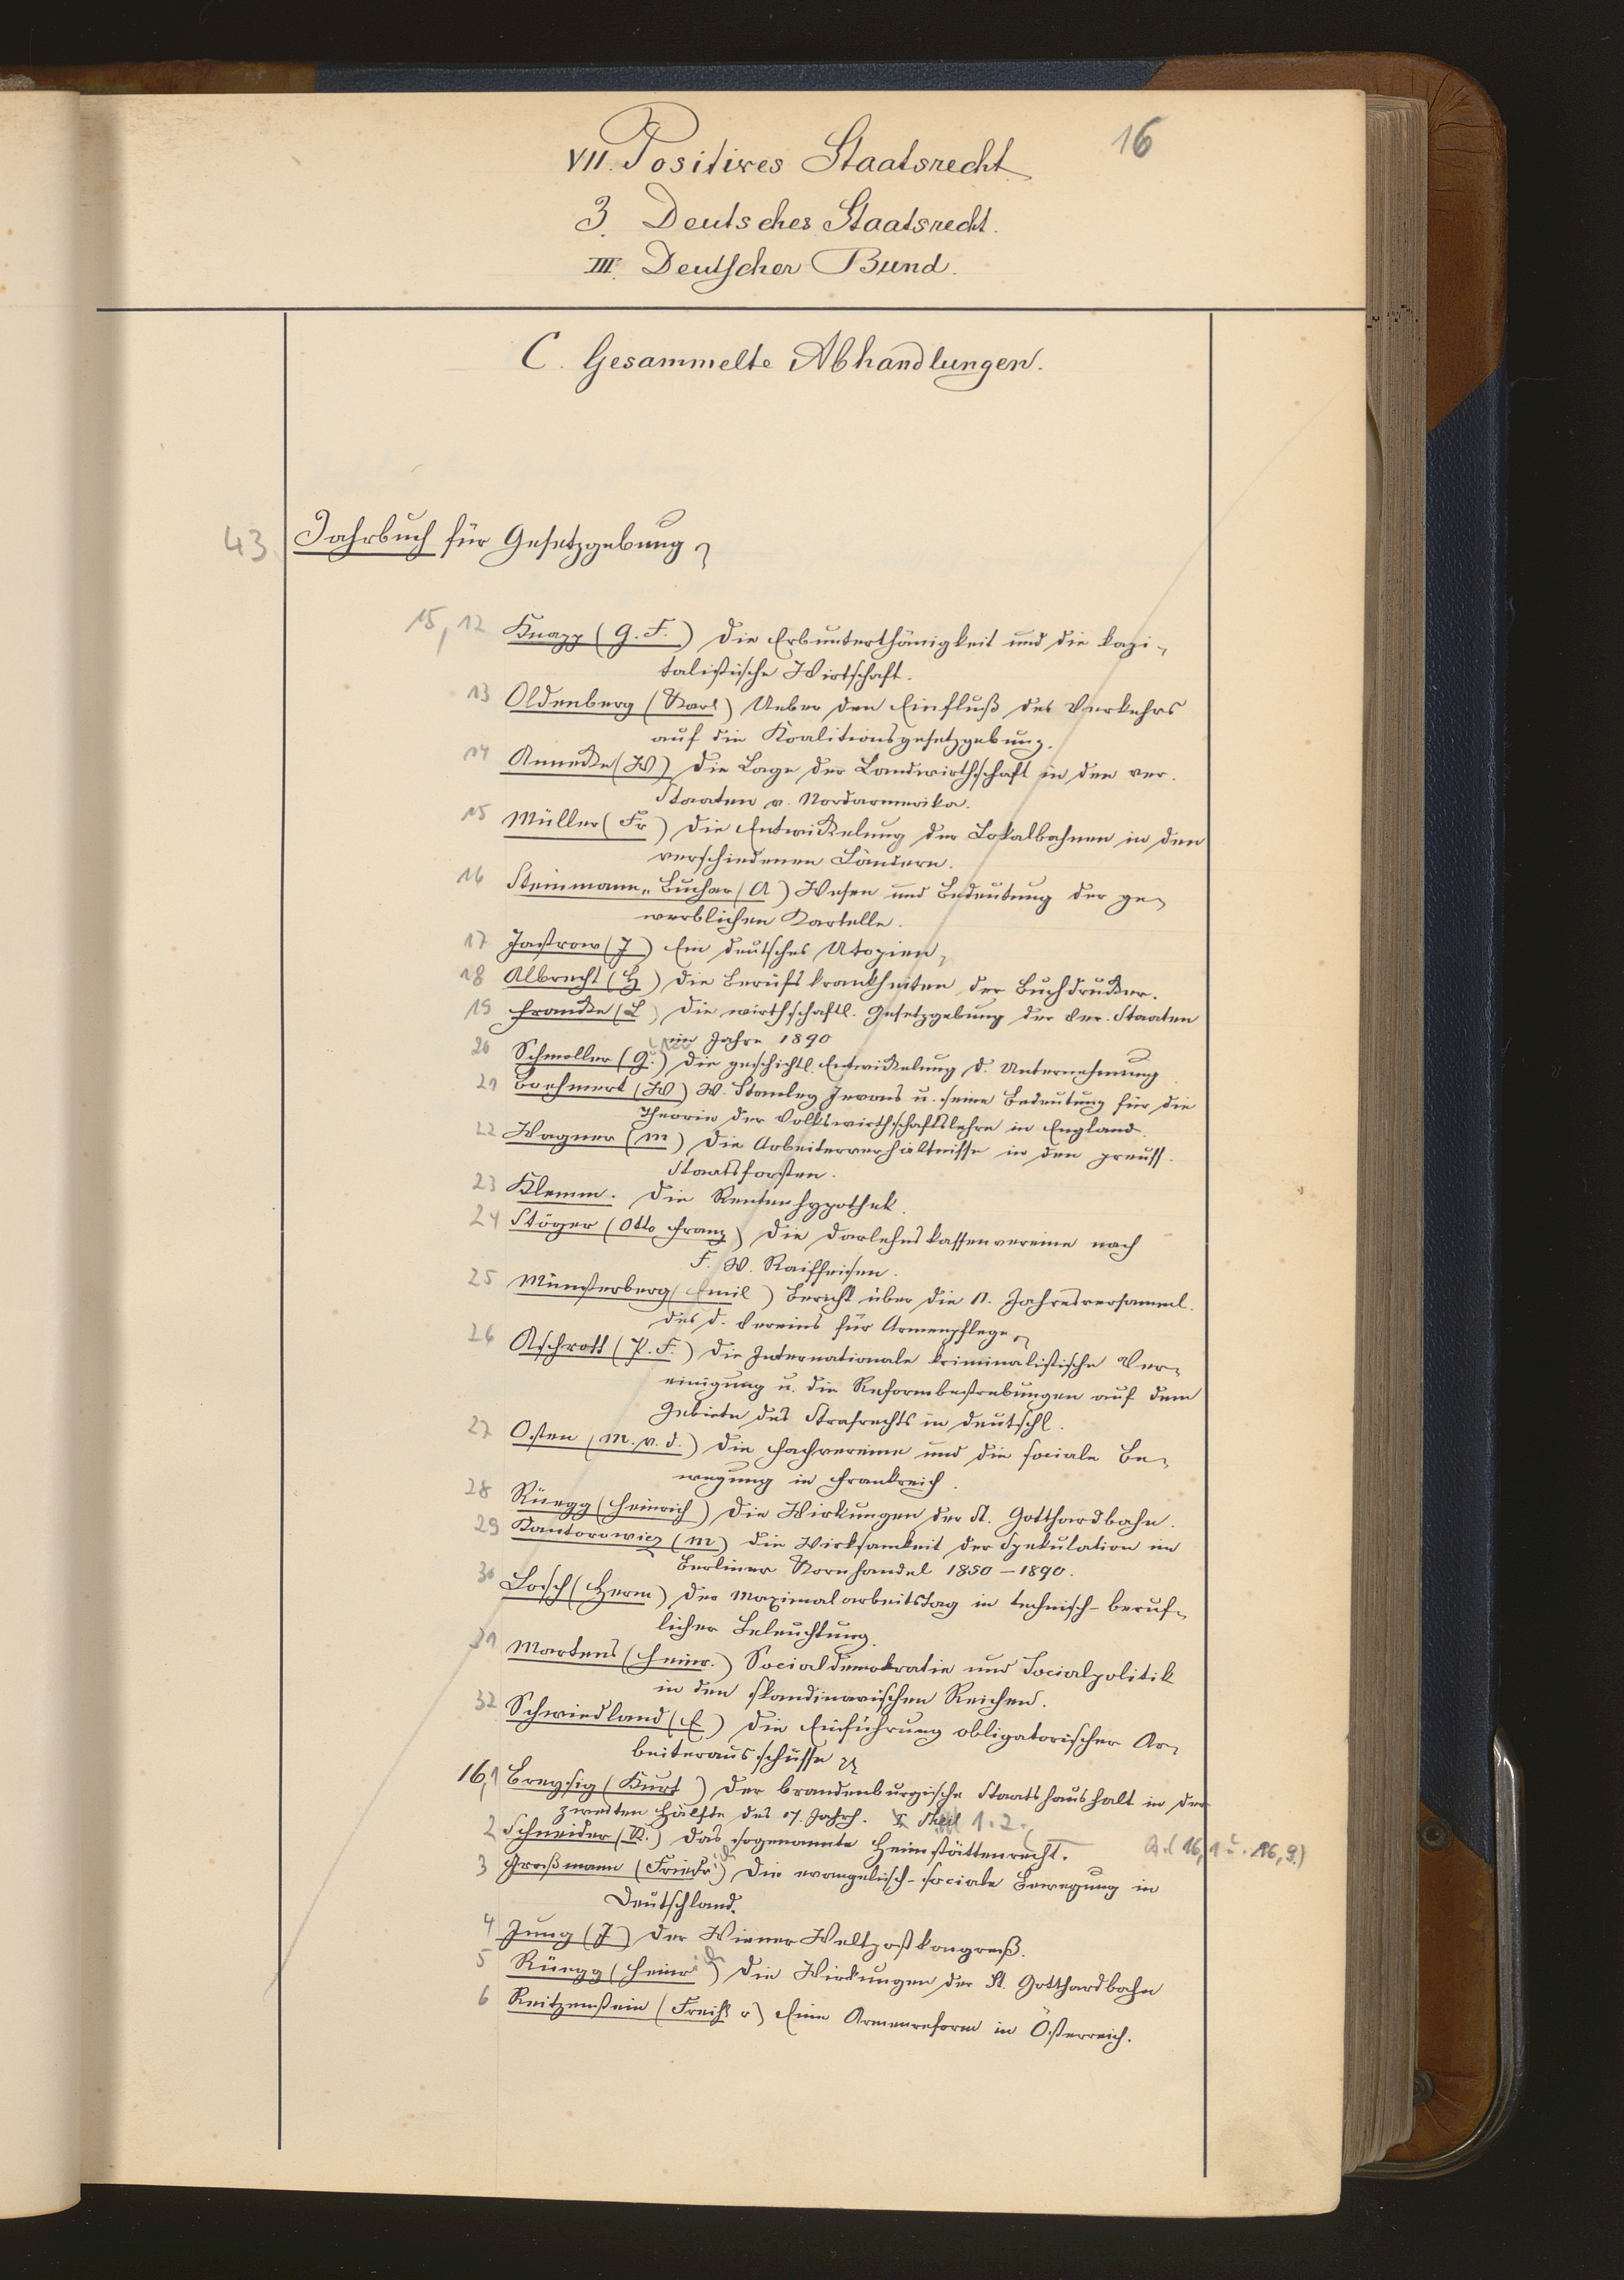 16
VII. Positives Staatsrecht
3. Deutsches Staatsrecht.
III. Deutscher Bund.
C. Gesammelte Abhandlungen.
43. Jahrbuch für Gesetzgebung
15, 12 Knapp (G. F.) Die Erbunterthänigkeit und die kapi-
talistische Wirtschaft.
13 Oldenberg (Karl) Ueber den Einfluß des Verkehrs
auf die Koalitionsgesetzgebung.
14 Annecke (W) Die Lage der Landwirthschaft in den ver.
Staaten v. Nordamerika.
15 Müller (Fr) Die Entwickelung der Lokalbahnen in den
verschiedenen Ländern.
16 Steinmann-Bucher (A) Wesen und Bedeutung der ge-
werblichen Kartelle.
17 Jastrow (J) Ein deutsches Utopien,
18 Albrecht (H) Die Berufskrankheiten der Buchdrucker.
19 Francke (E) Die wirthschaftl. Gesetzgebung der Ver. Staaten
im Jahre 1890
20 Schmoller (G.) Die geschichtl. Entwickelung d. Unternehmung
21 Boehmert (W) W. Stanley Jevons u. seine Bedeutung für die
Theorie der Volkswirthschaftslehre in England.
22 Wagner (M) Die Arbeiterverhältnisse in den preuss.
Staatsforsten.
23 Klemm. Die Rentenhypothek.
24 Stöger (Otto Franz) Die Darlehnskassenvereine nach
F. W. Raiffeisen.
25 Münsterberg (Emil) Bericht über die 11. Jahresversamml.
des d. Vereins für Armenpflege
26 Aschrott (P. F.) Die Internationale kriminalistische Ver-
einigung u. die Reformbestrebungen auf dem
Gebiete des Strafrechts in Deutschl.
27 Osten (M. v. d.) Die Fachvereine und die sociale Be-
wegung in Frankreich.
28 Rüegg (Heinrich) Die Wirkungen der St. Gotthardbahn.
29 Kantorowicz (M) Die Wirksamkeit der Spekulation im
Berliner Kornhandel 1850-1890.
30 Losch (Herm) Der Maximalarbeitstag in technisch-beruf-
licher Beleuchtung.
31 Martens (Heinr.) Socialdemokratie und Socialpolitik
in den skandinavischen Reichen.
32 Schwiedland (E) Die Einführung obligatorischer Ar-
beiterausschüsse
16,1 Breysig (Kurt) Der brandenburgische Staatshaushalt in der
zweiten Hälfte des 17. Jahrh. I. Theil 1. 2.
2 Schneider (K.) Das sogenannte Heimstättenrecht. (16,1 u. 16,9.)
3 Großmann (Friedr.) Die evangelisch-sociale Bewegung in
Deutschland.
4 Jung (J) Der Wiener Weltpostkongreß.
5 Rüegg (Heinr) Die Wirkungen der St. Gotthardbahn
6 Reitzenstein (Freih v) Eine Armenreform in Österreich.